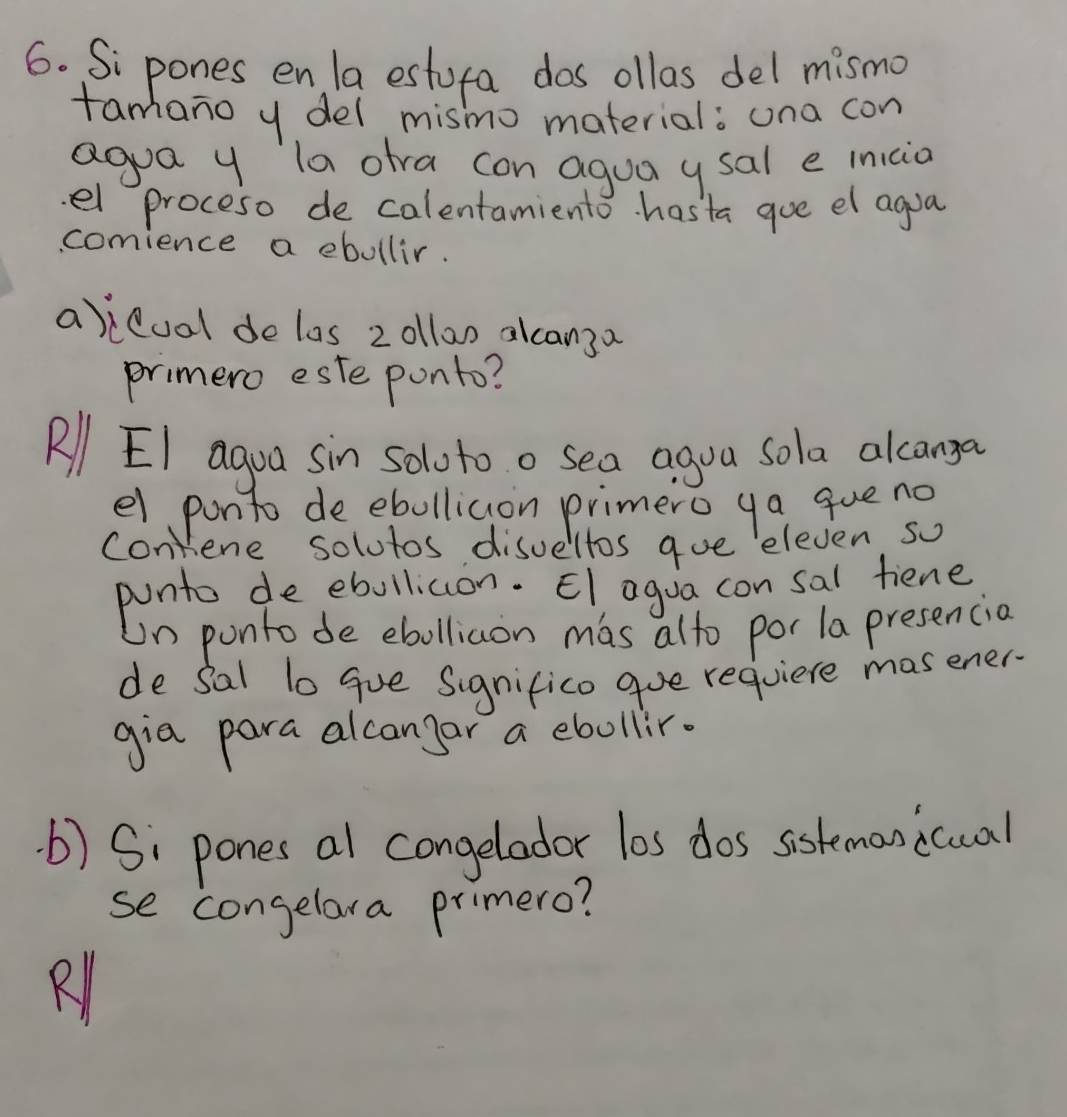 6. Si pones en la estufa dos ollas del mismo
tamaño y del mismo material: una con
agua y la otra con agua y sal e inicia
el proceso de calentamiento hasta que el agua
comience a ebullir.
a) ¿Cual de las 2 ollas alcanza
primero este punto?
R// El agua sin soluto o sea agua sola alcanza
el punto de ebullición primero ya que no
contiene solutos disueltos que eleven su
punto de ebullición. El agua con sal tiene
Un punto de ebullición más alto por la presencia
de sal lo que significo que requiere mas ener-
gia para alcanzar a ebullir.
b) Si pones al congelador los dos sistemas ¿cual
se congelara primero?
R//